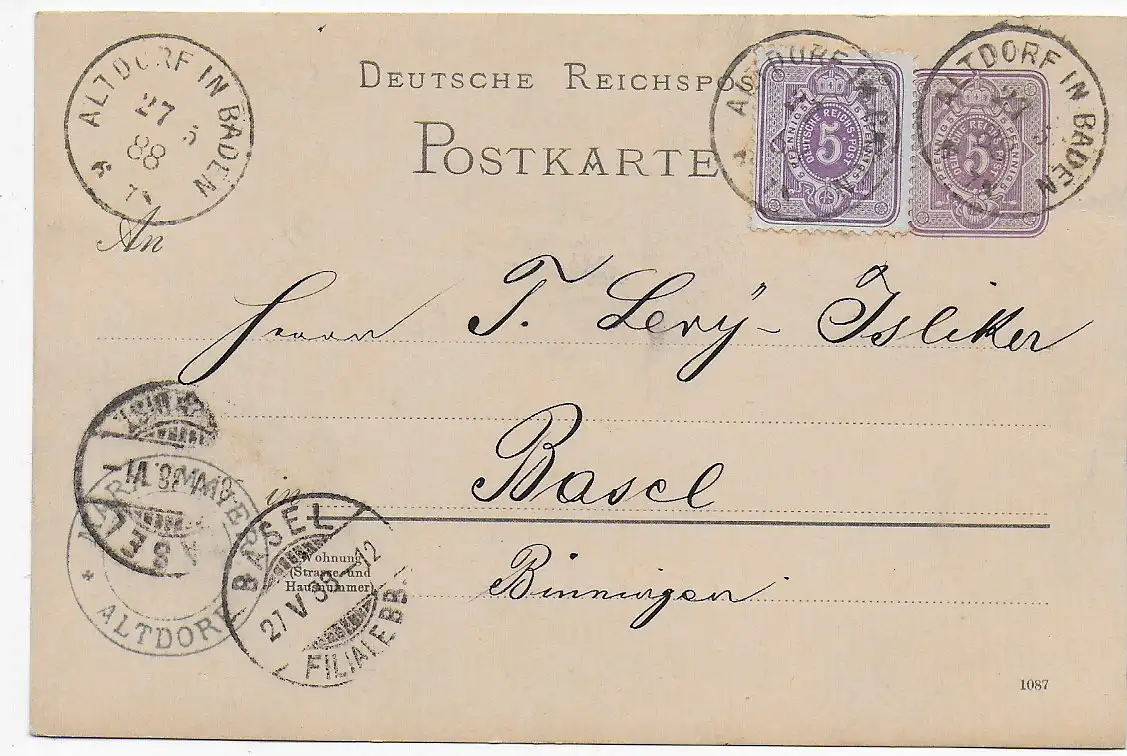 DEUTSCHE REICHSPOS
POSTKARTE
ALTDORF IN BADEN
27 5
88
DEUTSCHE REICHS-POST
5
5 PFENNIG 5
ALTDORF IN BADEN
5
ALTDORF IN BADEN
An
Herrn T. Levÿ- Isliker
in Basel
Wohnung
(Strasse und
Hausnummer)
Binningen
ALTDORF
BASEL
27 V 88-12
FILIALE BB.
1087